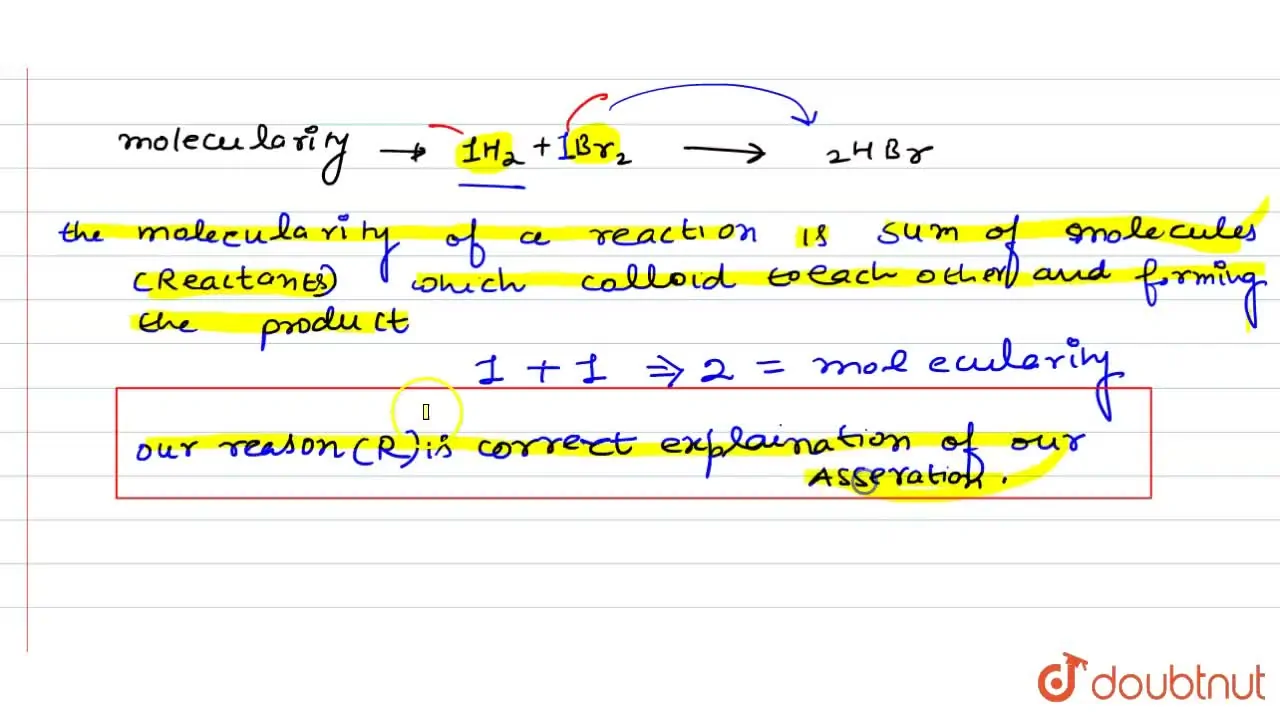 molecularity → 1H₂ + 1Br₂ → 2HBr
the molecularity of a reaction is sum of molecules
(Reactants) which colloid to each other and forming
the product
1 + 1 ⇒ 2 = molecularity
our reason (R) is correct explaination of our
Asseration.
doubtnut